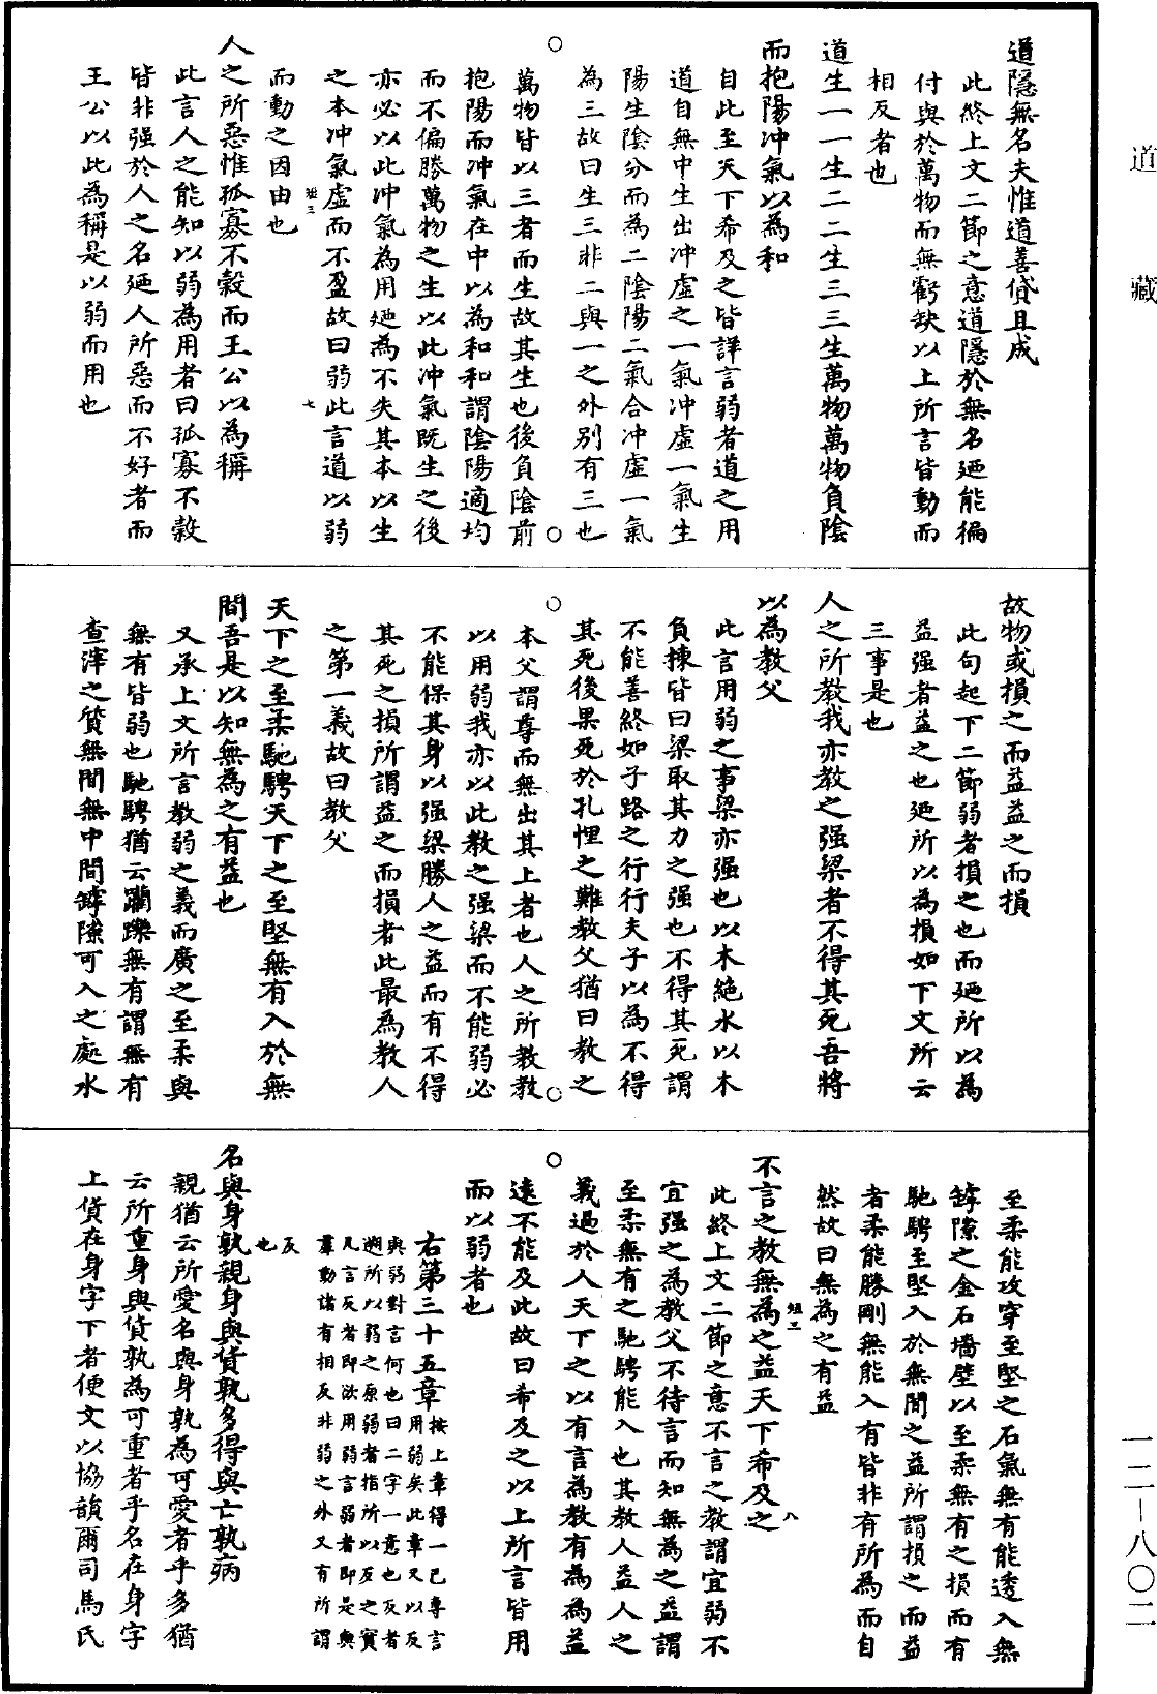 道隱無名夫惟道善貸且成
此終上文二節之意道隱於無名廼能徧
付與於萬物而無虧缺以上所言皆動而
相反者也
道生一一生二二生三三生萬物萬物負陰
而抱陽冲氣以為和
自此至天下希及之皆詳言弱者道之用
道自無中生出冲虛之一氣冲虛一氣生
陽生陰分而為二陰陽二氣合冲虛一氣
為三故曰生三非二與一之外別有三也
萬物皆以三者而生故其生也後負陰前
抱陽而冲氣在中以為和和謂陰陽適均
而不偏勝萬物之生以此冲氣既生之後
亦必以此冲氣為用廼為不失其本以生
之本冲氣虛而不盈故曰弱此言道以弱
短三 七
而動之因由也
人之所惡惟孤寡不穀而王公以為稱
此言人之能知以弱為用者曰孤寡不穀
皆非强於人之名廼人所惡而不好者而
王公以此為稱是以弱而用也
故物或損之而益益之而損
此句起下二節弱者損之也而廼所以為
益强者益之也廼所以為損如下文所云
三事是也
人之所教我亦教之强梁者不得其死吾將
以為教父
此言用弱之事梁亦强也以木絶水以木
負棟皆曰梁取其力之强也不得其死謂
不能善終如子路之行行夫子以為不得
其死後果死於孔悝之難教父猶曰教之
本父謂尊而無出其上者也人之所教教
以用弱我亦以此教之强梁而不能弱必
不能保其身以强梁勝人之益而有不得
其死之損所謂益之而損者此最為教人
之第一義故曰教父
天下之至柔馳騁天下之至堅無有入於無
間吾是以知無為之有益也
又承上文所言教弱之義而廣之至柔與
無有皆弱也馳騁猶云躪躒無有謂無有
查滓之質無間無中間罅隙可入之處水
至柔能攻穿至堅之石氣無有能透入無
罅隙之金石墻壁以至柔無有之損而有
馳騁至堅入於無間之益所謂損之而益
者柔能勝剛無能入有皆非有所為而自
然故曰無為之有益
短三 八
不言之教無為之益天下希及之
此終上文二節之意不言之教謂宜弱不
宜强之為教父不待言而知無為之益謂
至柔無有之馳騁能入也其教人益人之
義過於人天下之以有言為教有為為益
遠不能及此故曰希及之以上所言皆用
而以弱者也
右第三十五章按上章得一已專言
用弱矣此章又以反
與弱對言何也曰二字一意也反者
遡所以弱之原弱者指所以反之實
凡言反者即欲用弱言弱者即是與
羣動諸有相反非弱之外又有所謂
反
也
名與身孰親身與貨孰多得與亡孰病
親猶云所愛名與身孰為可愛者乎多猶
云所重身與貨孰為可重者乎名在身字
上貨在身字下者便文以協韻爾司馬氏
道藏
一二－八〇二